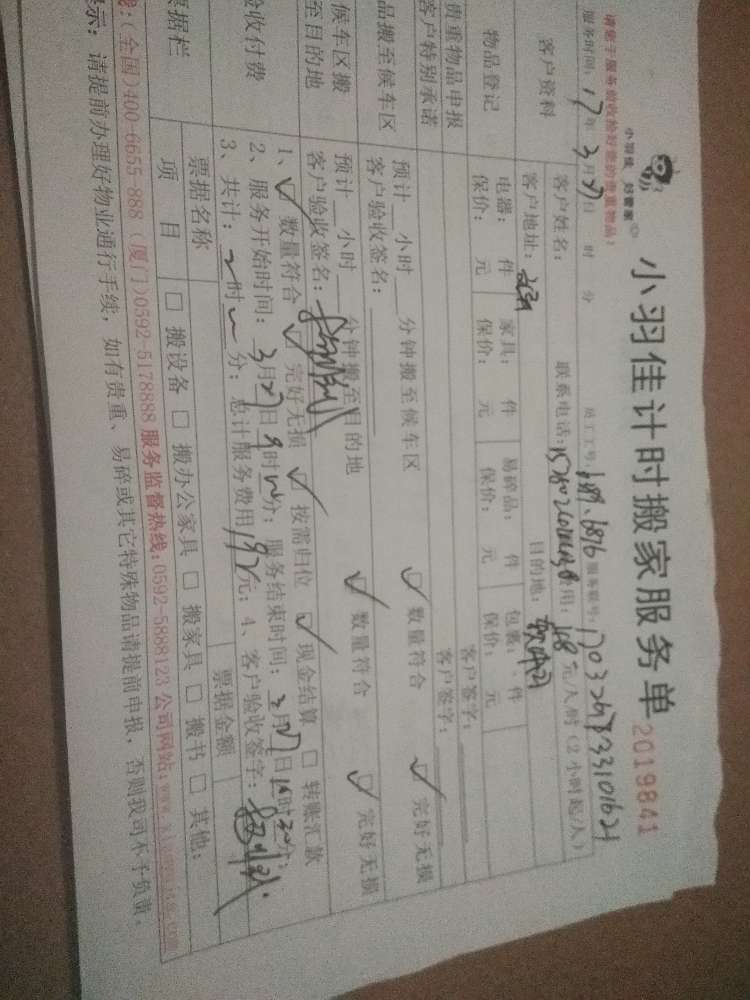 小羽佳 好管家
小羽佳计时搬家服务单 2019841
请您于服务前收拾好您的贵重物品!
服务时间: 17年 3月 27日 时 分 员工工号: 服务联号:
客户资料
客户姓名: 联系电话: 费用: 元/人/时(2小时起/人)
客户地址: 目的地:
物品登记
电器: 件 家具: 件 易碎品: 件 包裹: 件
保价: 元 保价: 元 保价: 元 保价: 元
贵重物品申报 客户签字:
客户特别承诺 客户签字:
品搬至候车区
预计 小时 分钟搬至候车区 ☑ 数量符合 ☑ 完好无损
客户验收签名:
候车区搬至目的地
预计 小时 分钟搬至目的地 ☑ 数量符合 ☑ 完好无损
客户验收签名:
验收付费
1、☑ 数量符合 ☑ 完好无损 ☑ 按需归位 ☑ 现金结算 □ 转账汇款
2、服务开始时间: 3月27日9时 分; 服务结束时间: 3月27日 时30分;
3、共计: 时 分; 总计服务费用 元; 4、客户验收签字:
票据栏
票据名称 票据金额
项 目 □ 搬设备 □ 搬办公家具 □ 搬家具 □ 搬书 □ 其他:
线:(全国)400-6655-888 (厦门)0592-5178888 服务监督热线:0592-5888123 公司网站:
示: 请提前办理好物业通行手续, 如有贵重、易碎或其它特殊物品请提前申报, 否则我司不予负责.